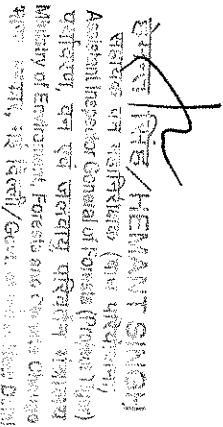 हेमन्त सिंह/HEMANT SINGH
सहायक वन महानिरीक्षक (बाघ परियोजना)
Assistant Inspector General of Forests (Project Tiger)
पर्यावरण, वन एवं जलवायु परिवर्तन मंत्रालय
Ministry of Environment, Forests and Climate Change
भारत सरकार, नई दिल्ली/Govt. of India, New Delhi